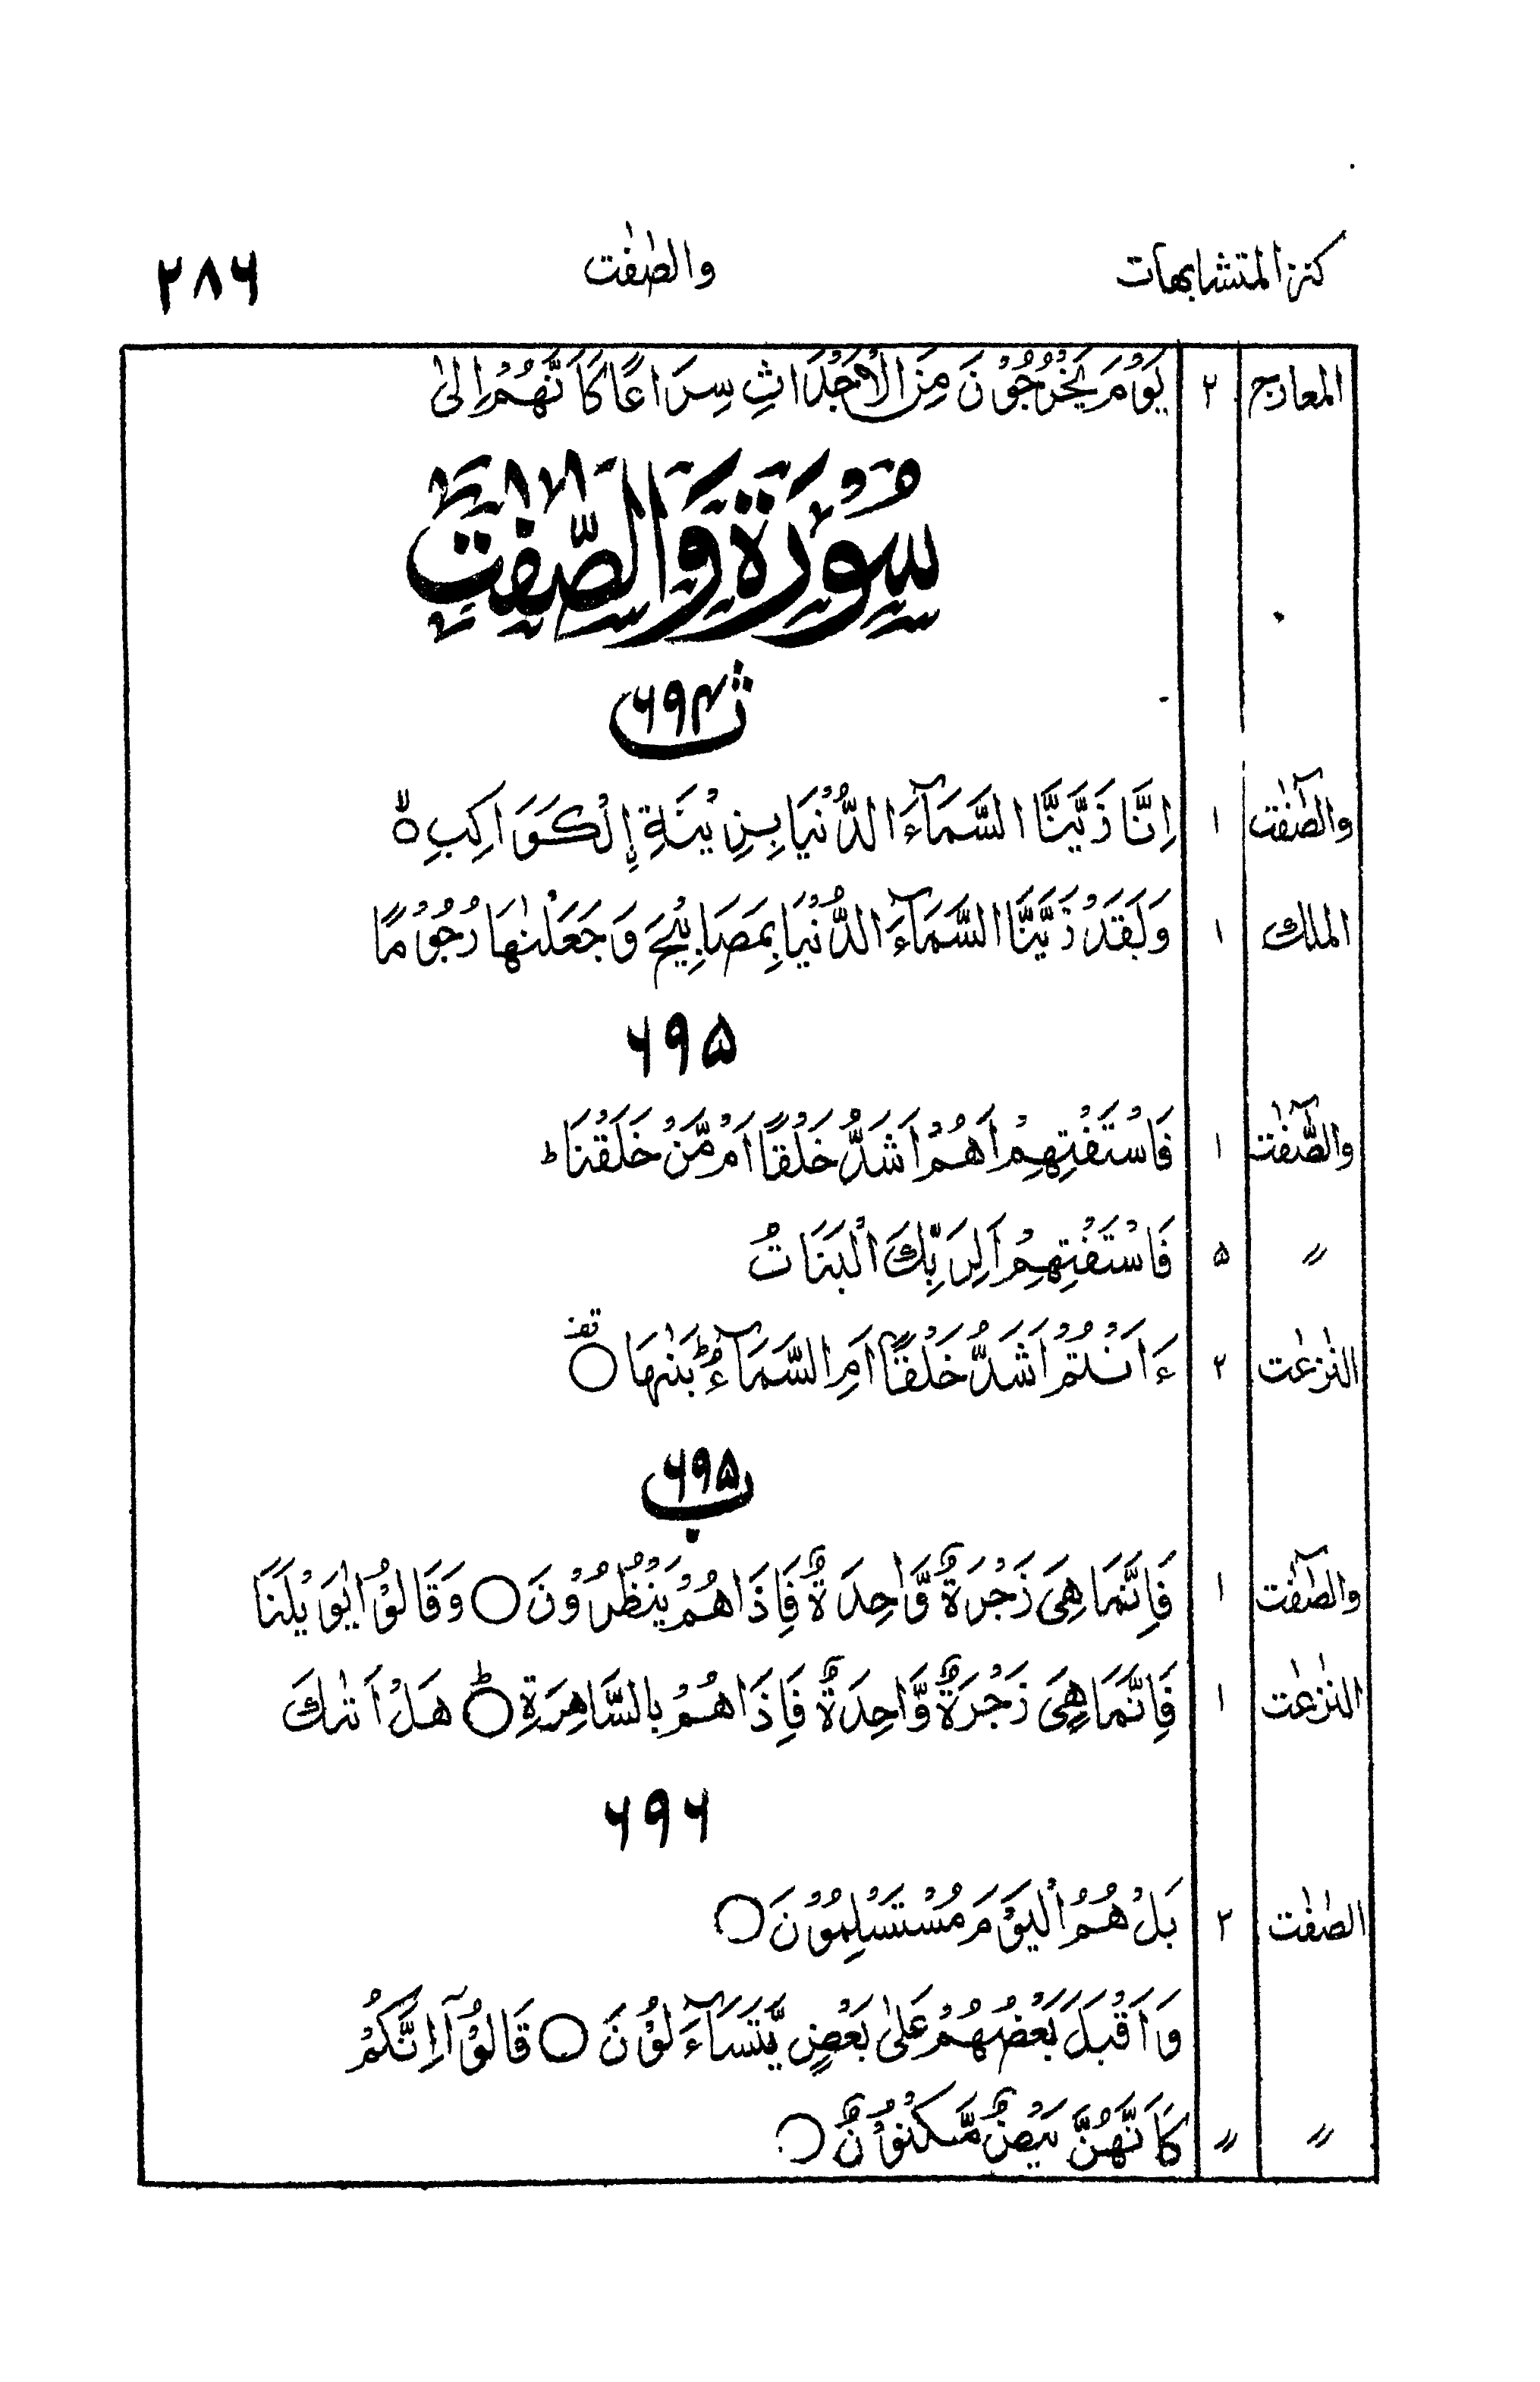 كنز المتشابهات والصّٰفّٰت ۲۸۶
المعارج ۲ يَوْمَ يَخْرُجُوْنَ مِنَ الْاَجْدَاثِ سِرَاعًا كَاَنَّهُمْ اِلٰى
سُوْرَةُ وَالصّٰٓفّٰتِ
۶۹۴ ث
والصّٰٓفّٰت ۱ اِنَّا زَيَّنَّا السَّمَآءَ الدُّنْيَا بِزِيْنَةِ اِلْكَوَاكِبِ ۙ
الملك ۱ وَلَقَدْ زَيَّنَّا السَّمَآءَ الدُّنْيَا بِمَصَابِيْحَ وَجَعَلْنٰهَا رُجُوْمًا
۶۹۵
والصّٰٓفّٰت ۱ فَاسْتَفْتِهِمْ اَهُمْ اَشَدُّ خَلْقًا اَمْ مَّنْ خَلَقْنَا ؕ
〃 ۵ فَاسْتَفْتِهِمْ اَلِرَبِّكَ الْبَنَاتُ
النّٰزعٰت ۲ ءَاَنْتُمْ اَشَدُّ خَلْقًا اَمِ السَّمَآءُ ؕ بَنٰىهَا ○
۶۹۵ ب
والصّٰٓفّٰت ۱ فَاِنَّمَا هِيَ زَجْرَةٌ وَّاحِدَةٌ فَاِذَا هُمْ يَنْظُرُوْنَ ○ وَقَالُوْا يٰوَيْلَنَا
النّٰزعٰت ۱ فَاِنَّمَا هِيَ زَجْرَةٌ وَّاحِدَةٌ فَاِذَا هُمْ بِالسَّاهِرَةِ ○ؕ هَلْ اَتٰىكَ
۶۹۶
الصّٰفّٰت ۲ بَلْ هُمُ الْيَوْمَ مُسْتَسْلِمُوْنَ ○
وَاَقْبَلَ بَعْضُهُمْ عَلٰى بَعْضٍ يَّتَسَآءَلُوْنَ ○ قَالُوْٓا اِنَّكُمْ
〃 〃 كَاَنَّهُنَّ بَيْضٌ مَّكْنُوْنٌ ○